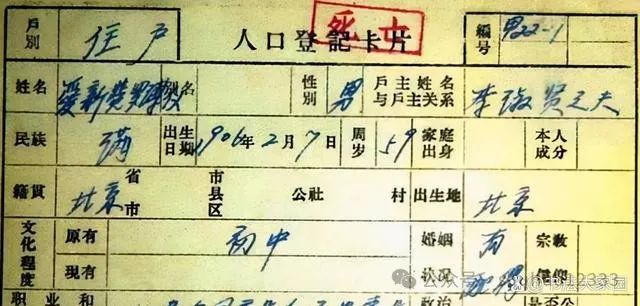 戶别 住戶 人口登記卡片 死亡 編号 男22-1
姓名 爱新觉罗 别名 性别 男 戶主姓名与戶主关系 李淑贤之夫
民族 满 出生日期 1906年2月7日 周岁 59 家庭出身 本人成分
籍貫 北京 省市 市县区 公社 村 出生地 北京
文化程度 原有 初中 婚姻状况 有 宗教信仰
现有
职业和 政治 是否公
公众号 12333